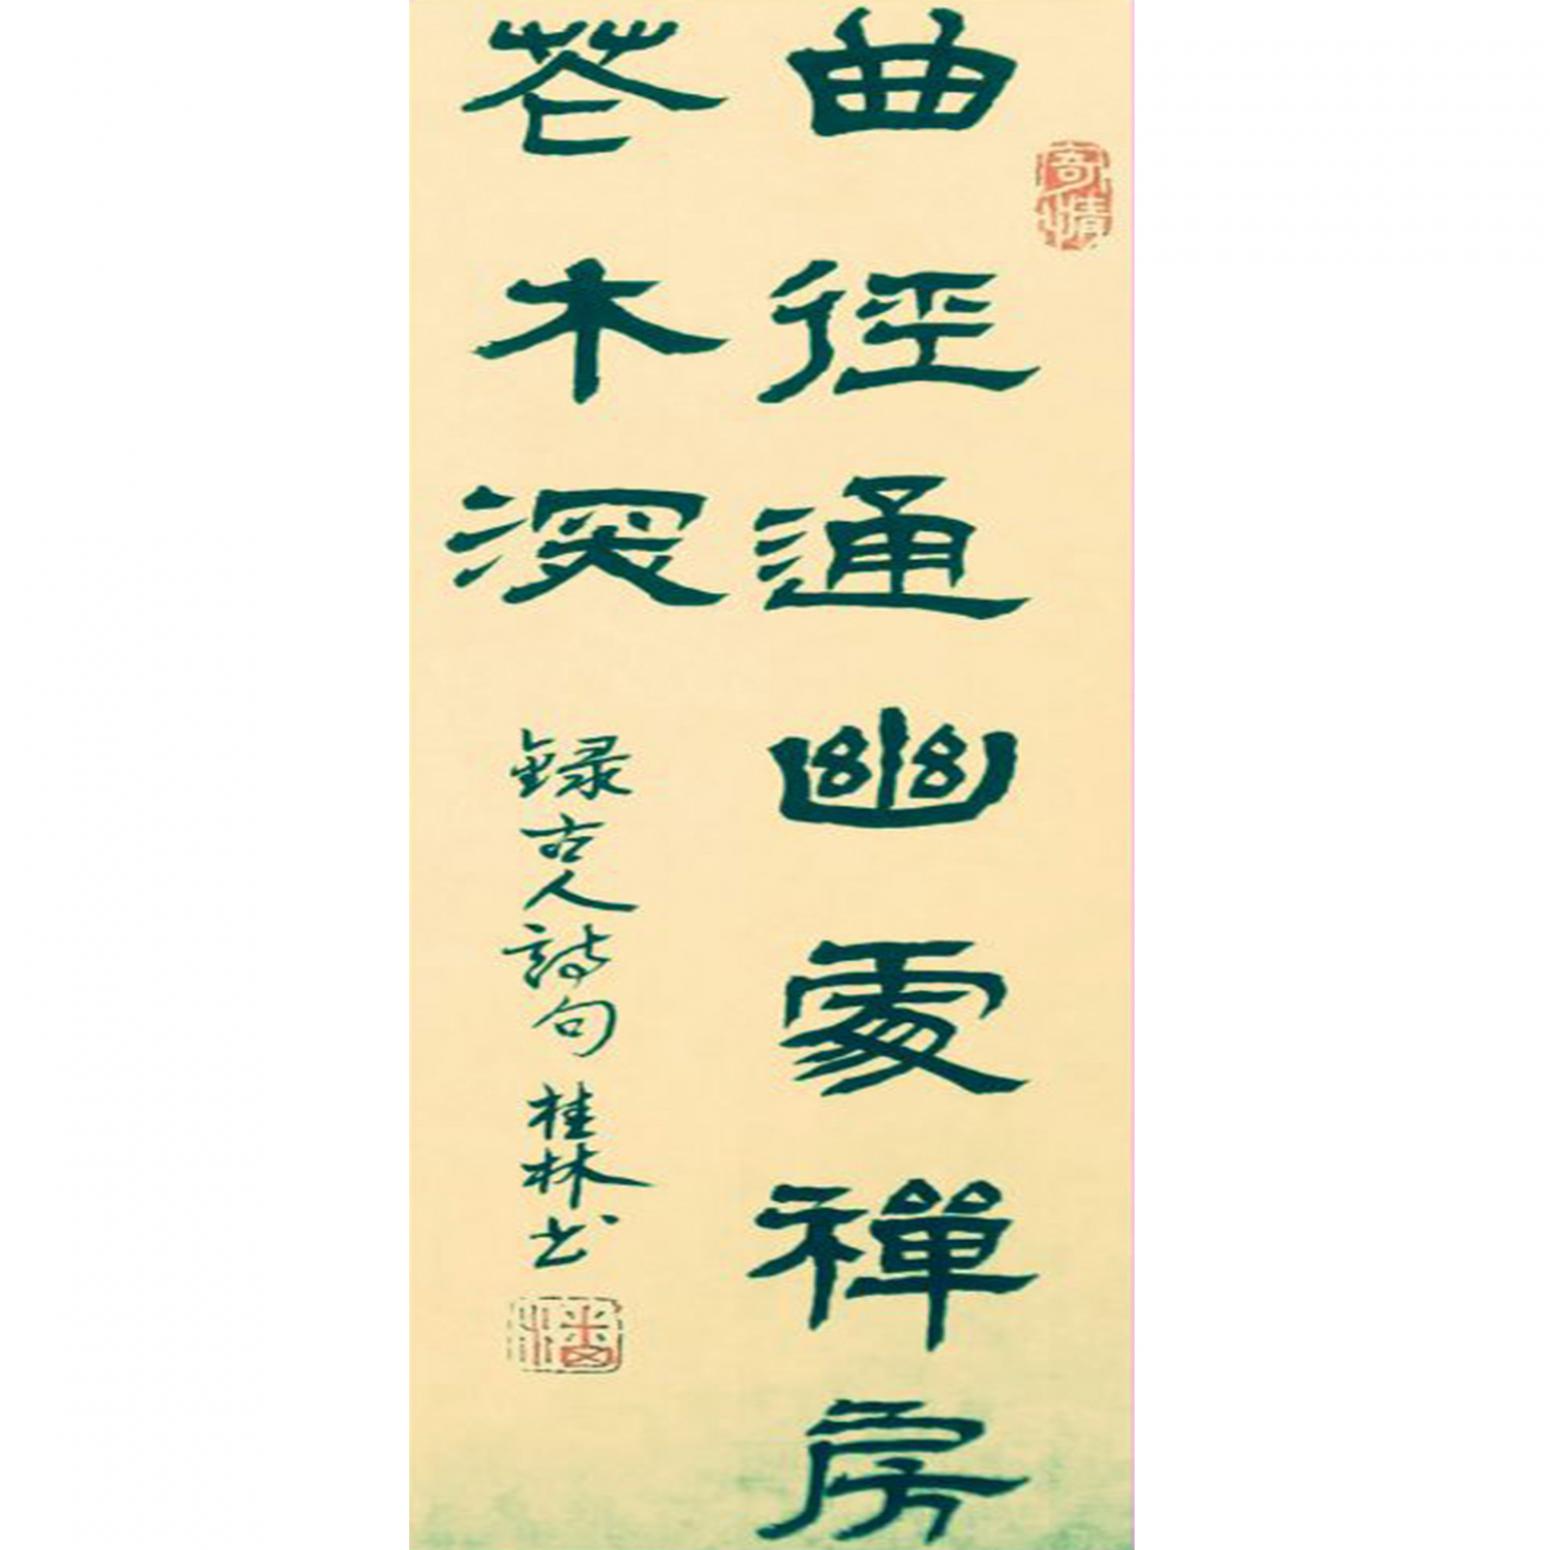 曲徑通幽處禪房
花木深
錄古人詩句桂林书
奇情
潘